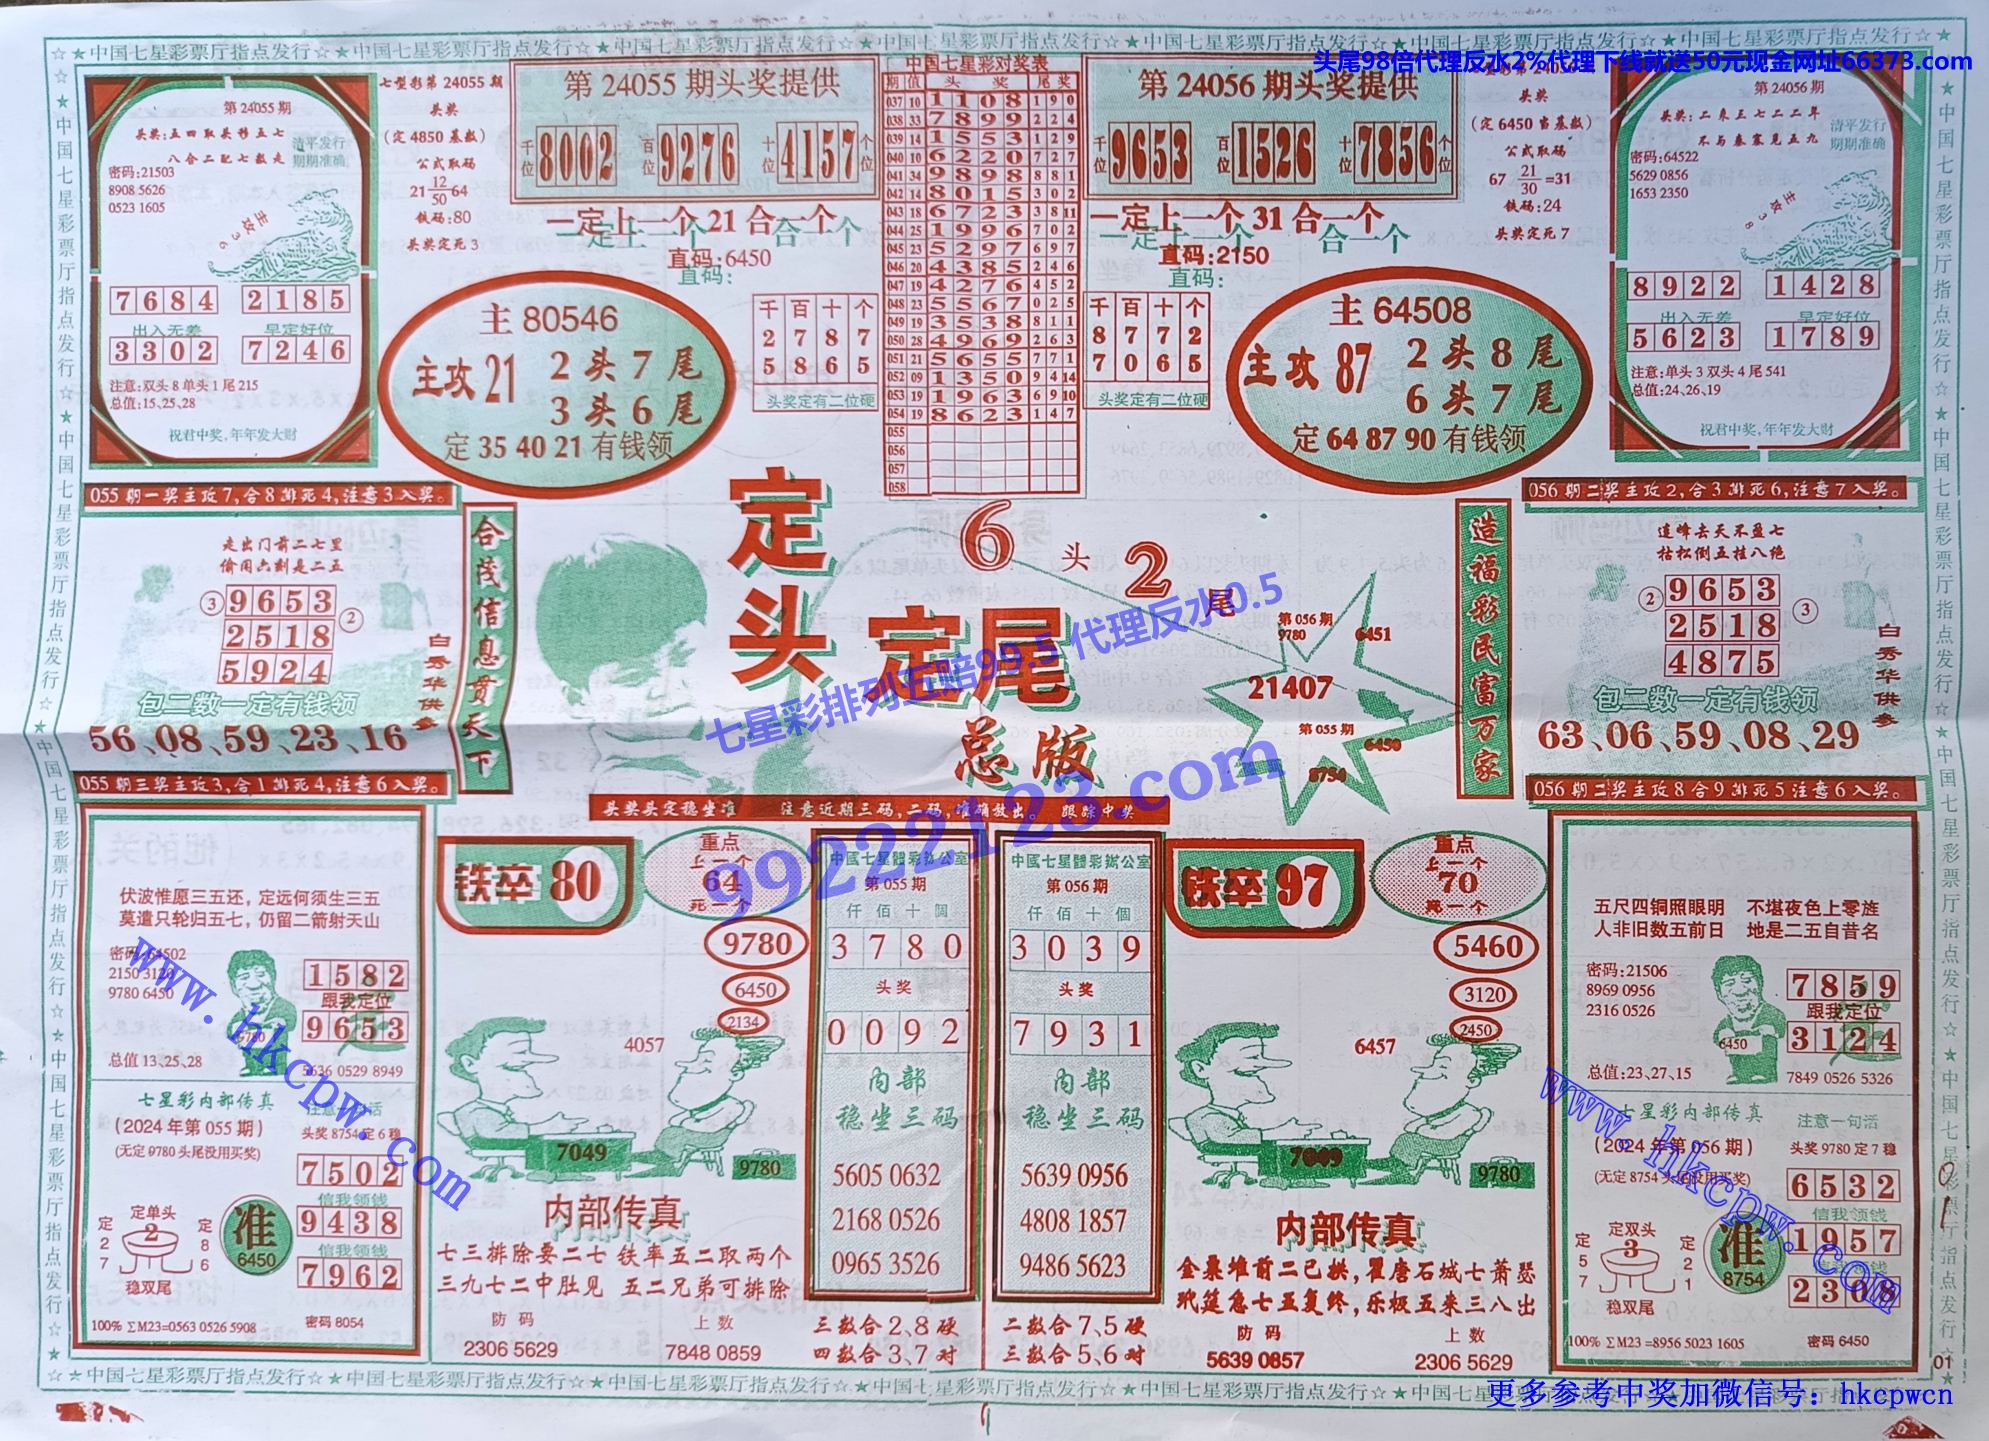 ☆★中国七星彩票厅指点发行☆★中国七星彩票厅指点发行☆★中国七星彩票厅指点发行☆★中国七星彩票厅指点发行☆
头尾98倍代理反水2%代理下线就送50元现金网址66373.com
第 24055 期
头奖:五四取头移五七
八合二配七数走
清平发行
期期准确
密码:21503
8908 5626
0523 1605
主攻36
7684 2185
出入无差 早定好位
3302 7246
注意:双头 8 单头 1 尾 215
总值:15、25、28
祝君中奖,年年发大财
七型彩第 24055 期
头奖
(定 4850 基数)
公式取码
21 12/50 64
铁码:80
头奖定死 3
第 24055 期头奖提供
千位 8002 百位 9276 十位 4157 个位
一定上一个 21 合一个
直码:6450
直码:
主 80546
主攻 21 2 头 7 尾
3 头 6 尾
定 35 40 21 有钱领
千 百 十 个
2 7 8 7
5 8 6 5
头奖定有二位硬
中国七星彩对奖表
期 值 头 奖 尾 奖
037 10 1 1 0 8 1 9 0
038 33 7 8 9 9 2 2 4
039 14 1 5 5 3 1 2 9
040 10 6 2 2 0 7 2 7
041 34 9 8 9 8 8 8 1
042 14 8 0 1 5 3 0 2
043 18 6 7 2 3 3 8 11
044 25 1 9 9 6 7 0 2
045 23 5 2 9 7 6 9 7
046 20 4 3 8 5 2 4 6
047 19 4 2 7 6 4 5 2
048 23 5 5 6 7 0 2 5
049 19 3 5 3 8 8 1 1
050 28 4 9 6 9 2 6 3
051 21 5 6 5 5 7 7 1
052 09 1 3 5 0 9 4 14
053 19 1 9 6 3 6 9 10
054 19 8 6 2 3 1 4 7
055
056
057
058
第 24056 期头奖提供
千位 9653 百位 1526 十位 7856 个位
一定上一个 31 合一个
直码:2150
直码:
千 百 十 个
8 7 7 2
7 0 6 5
头奖定有二位硬
主 64508
主攻 87 2 头 8 尾
6 头 7 尾
定 64 87 90 有钱领
头奖
(定 6450 当基数)
公式取码
67 21/30 =31
铁码:24
头奖定死 7
第 24056 期
头奖:二来五七二二年
不与秦塞见五九
清平发行
期期准确
密码:64522
5629 0856
1653 2350
主攻38
8922 1428
出入无差 早定好位
5623 1789
注意:单头 3 双头 4 尾 541
总值:24、26、19
祝君中奖,年年发大财
055 期一奖主攻 7,合 8 排死 4,注意 3 入奖。
走出门前二七里
偷闲六刻是二五
③ 9653
2518 ②
5924
白秀华供参
包二数一定有钱领
56、08、59、23、16
合茂信息贯天下
定头 定尾
总版
6 头 2 尾
第 056 期
9780
6451
21407
第 055 期
6450
8754
造福彩民富万家
056 期二奖主攻 2,合 3 排死 6,注意 7 入奖。
连峰去天不盈七
枯松倒五挂八绝
② 9653
2518 ③
4875
白秀华供参
包二数一定有钱领
63、06、59、08、29
七星彩排列五赔99.5 代理反水0.5
99222123.com
055 期三奖主攻 3,合 1 排死 4,注意 6 入奖。
伏波惟愿三五还，定远何须生三五
莫遣只轮归五七，仍留二箭射天山
密码:64502
2150 3120
9780 6450
1582
跟我定位
9653
9780
总值 13、25、28
5636 0529 8949
七星彩内部传真
注意一句话
(2024 年第 055 期)
头奖 8754 定 6 稳
(无定 9780 头尾没用买奖)
7502
信我领钱
9438
信我领钱
7962
定单头
2
定 2 7
定 8 6
稳双尾
准
6450
100% ∑M23=0563 0526 5908
密码 8054
头奖头定稳坐准 注意近期三码,二码,准确放出。 跟踪中奖
铁卒 80
重点
上一个
64
死一个
9780
6450
2134
4057
7049
9780
内部传真
七三排除要二七 铁率五二取两个
三九七二中肚见 五二兄弟可排除
防码
2306 5629
上数
7848 0859
中國七星體彩辦公室
第 055 期
仟 佰 十 個
3780
头奖
0092
内部
稳坐三码
5605 0632
2168 0526
0965 3526
三数合 2、8 硬
四数合 3、7 对
中國七星體彩辦公室
第 056 期
仟 佰 十 個
3039
头奖
7931
内部
稳坐三码
5639 0956
4808 1857
9486 5623
二数合 7、5 硬
三数合 5、6 对
铁卒 97
重点
上一个
70
死一个
5460
3120
2450
6457
7049
9780
内部传真
金粟堆前二已拱,瞿唐石城七萧瑟
玳筵急七五复终,乐极五来三八出
防码
5639 0857
上数
2306 5629
056 期二奖主攻 8 合 9 排死 5 注意 6 入奖。
五尺四铜照眼明 不堪夜色上零旌
人非旧数五前日 地是二五自昔名
密码:21506
8969 0956
2316 0526
7859
跟我定位
3124
6450
总值:23、27、15
7849 0526 5326
七星彩内部传真
注意一句话
(2024 年第 056 期)
头奖 9780 定 7 稳
(无定 8754 头尾没用买奖)
6532
信我领钱
1957
信我领钱
2308
定双头
3
定 5 7
定 2 1
稳双尾
准
8754
100% ∑M23 =8956 5023 1605
密码 6450
www.hkcpw.com
www.hkcpw.com
01
☆★中国七星彩票厅指点发行☆★中国七星彩票厅指点发行☆★中国七星彩票厅指点发行☆★中国七星彩票厅指点发行☆
更多参考中奖加微信号：hkcpwcn